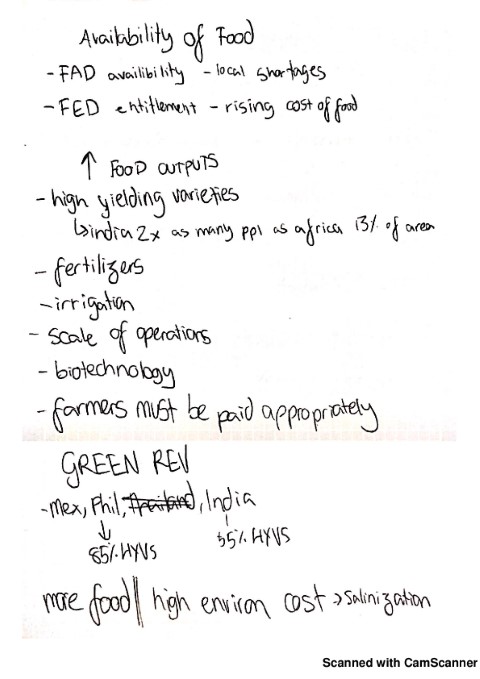 Availability of Food
- FAD availibility - local shortages
- FED entitlement - rising cost of food
↑ FOOD OUTPUTS
- high yielding varieties
↳ india 2x as many ppl as africa 13% of area
- fertilizers
- irrigation
- scale of operations
- biotechnology
- farmers must be paid appropriately
GREEN REV
- Mex, Phil, Thailand, India
↓
85% HYVS 35% HYVS
more food || high environ cost → Salinization
Scanned with CamScanner